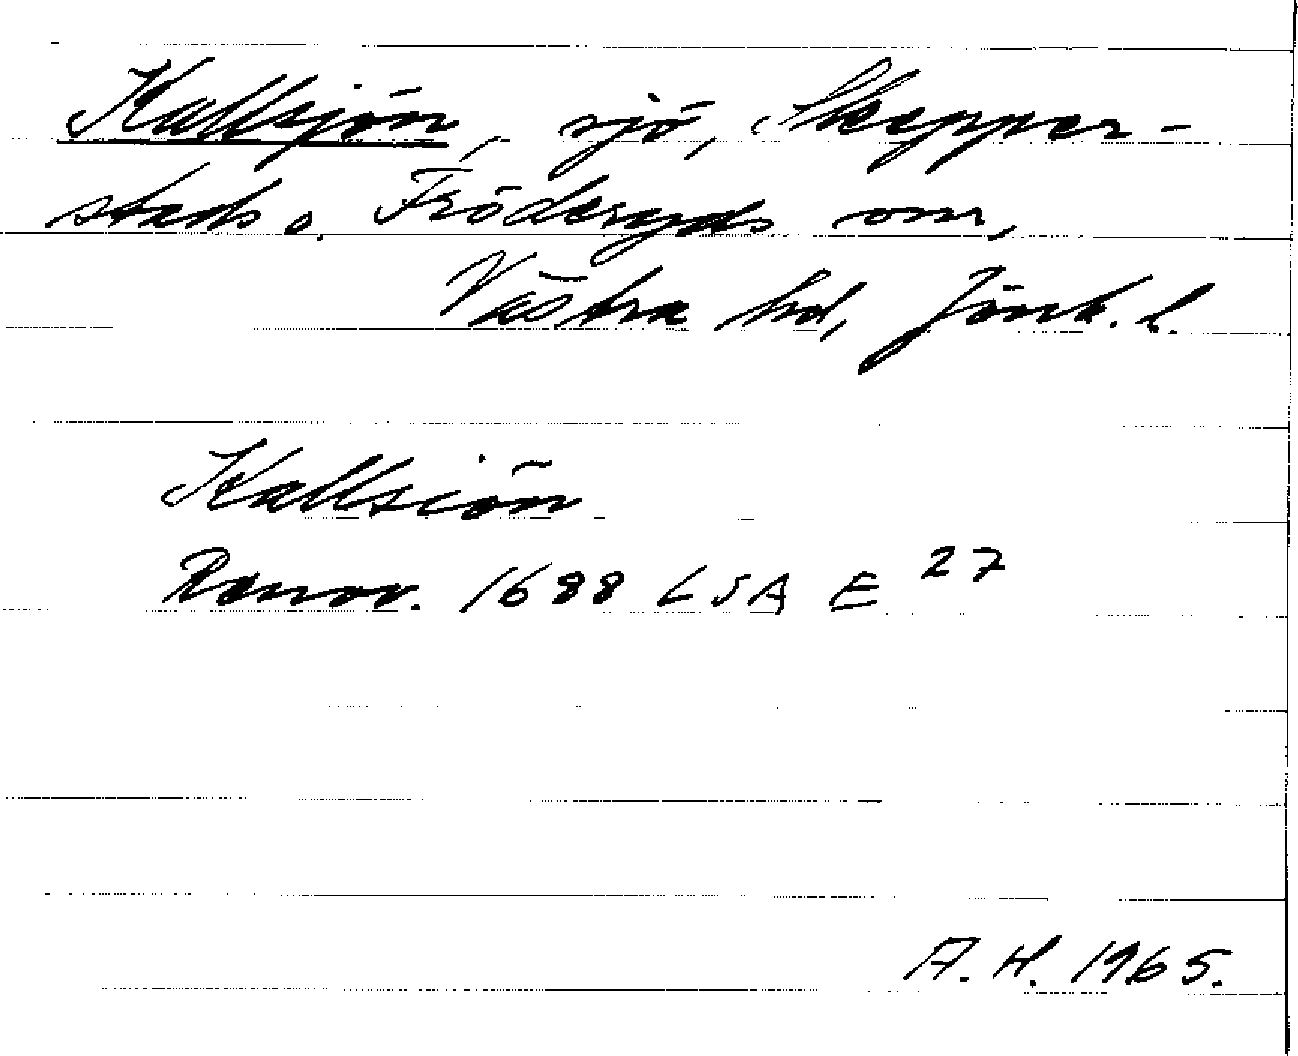 Kallsjön, sjö, Skepper-
stads o. Fröderyds snr,
Västra hd, Jönk. l.
Kallsiön
Renov. 1688 LSA E 27
A. H. 1965.